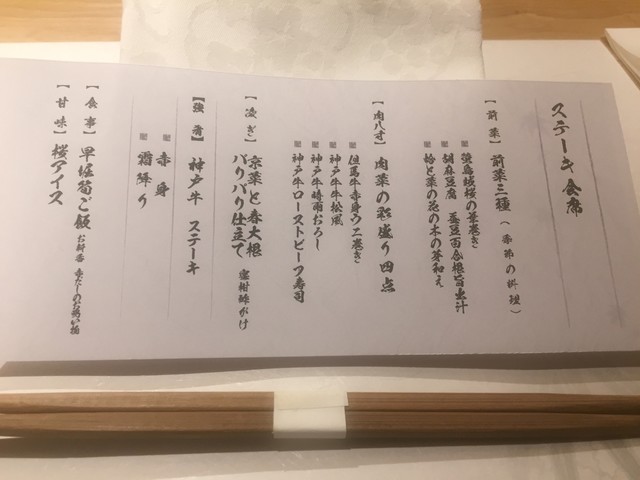 ステーキ会席
【前菜】 前菜三種 (季節の料理)
胡麻豆腐 蚕豆百合根旨出汁
蛤と菜の花の木の芽和え
【肉八寸】 肉菜の彩盛り四点
但馬牛赤身ウニ巻き
神戸牛牛松風
神戸牛時雨おろし
神戸牛ローストビーフ寿司
【凌ぎ】 京菜と春大根
パリパリ仕立て 蜜柑酢がけ
【強肴】 神戸牛 ステーキ
赤身
霜降り
【食事】 早堀筍ご飯 お新香 赤だしのお吸い物
【甘味】 桜アイス